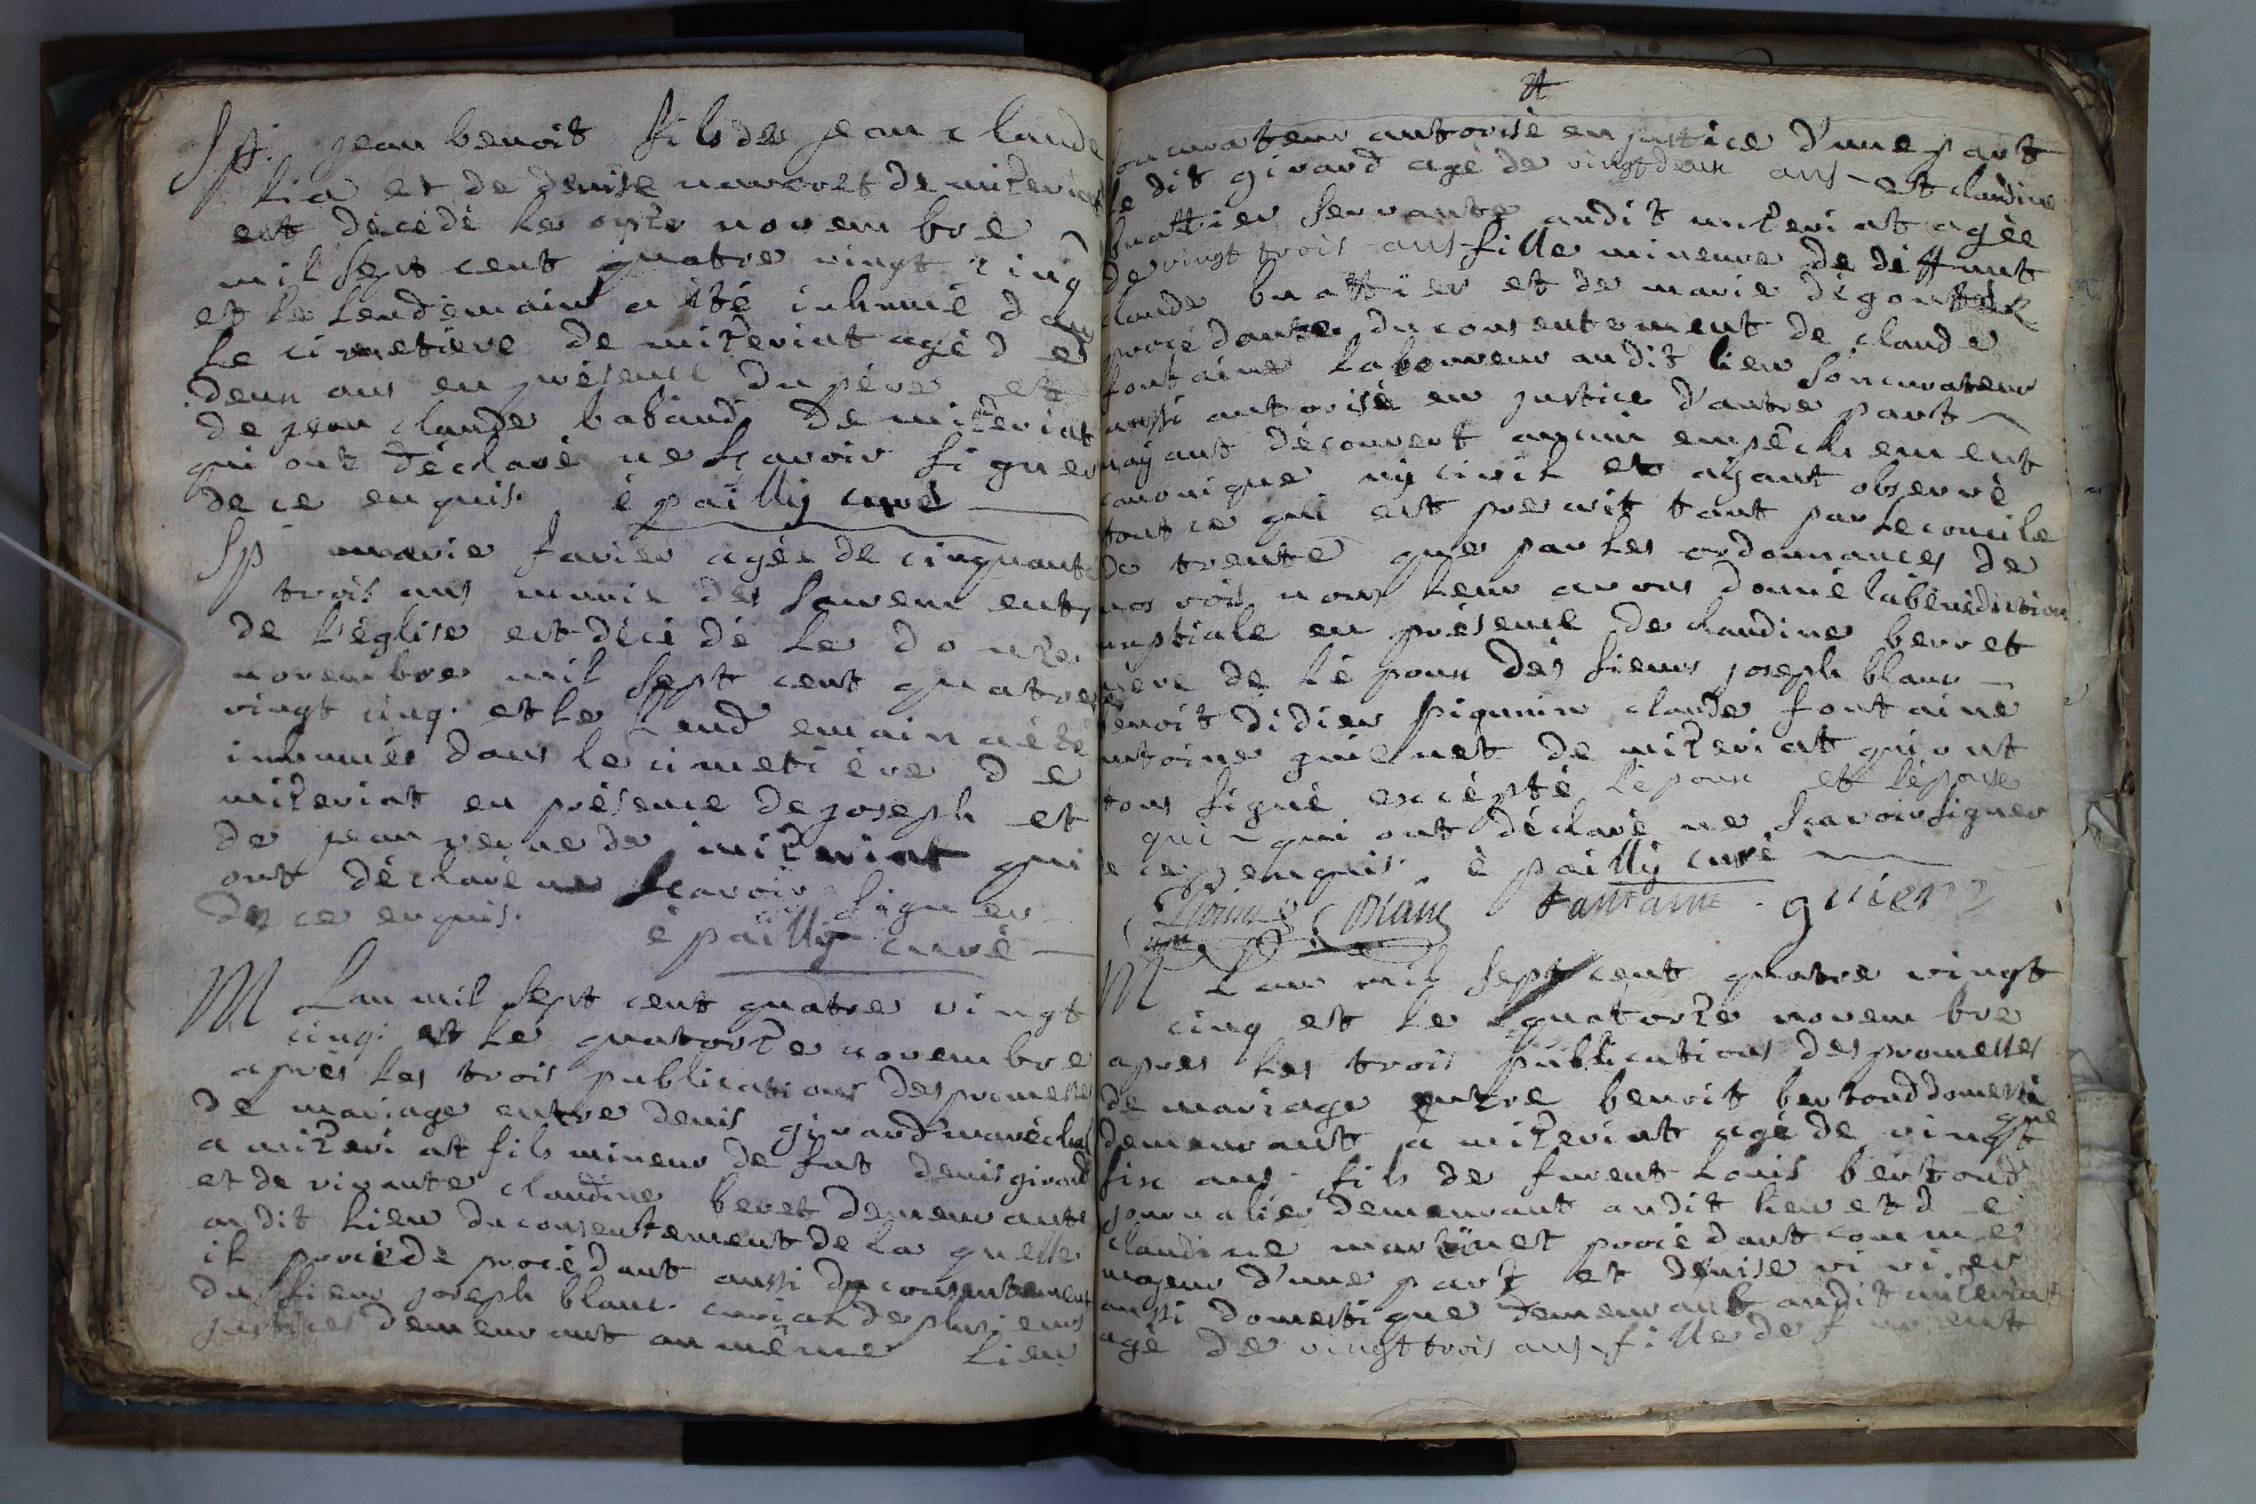 Sp. jean benoit fils de jean claude
lia et de denise navoret de miterint
est décédé le onze novembre
mil sept cent quatre vingt cinq
et le lendemain a été inhumé dans
le cimetiere de mizeriat agé de
deux ans en présence du père et
de jean claude baband de mizeriat
qui ont déclaré ne sçavoir signer
de ce enquis. é pailly curé
Sp marie favier agée de cinquante
trois ans munie des sacrements
de l'église est décédé le douze
novembre mil sept cent quatre
vingt cinq. et le lendemain a été
inhumés dans le cimetière de
mizeriat en présence de joseph et
de jean de mizeriat qui
ont déclaré ne sçavoir signer
de ce enquis.
é pailly curé
M Lan mil sept cent quatre vingt
cinq. et le quatorze novembre
après les trois publications des promesses
de mariage entre denis girard maréchal
a mizeriat fils mineur de fut denis girard
et de vivante claudine beret demeurante
audit lieu du consentement de la quelle
il procéde procédant aussi du consentement
du sieur joseph blanc. curial de plusieurs
justices demeurant au même lieu
son curateur autorisé en justice d'une part
le dit girard agé de vingt deux ans et claudine
buattier servante audit mizeriat agée
de vingt trois ans fille mineure de deffunt
claude buattier et de marie
procédante du consentement de claude
fontaine laboureur audit lieu son curateur
aussi autorisé en justice d'autre part
nayant découvert aucun empêchement
canonique ny civil et aÿant observé
tout ce qui est prescrit tant par le concile
de trente que par les ordonnances de
nos rois nous leur avons donné la bénédiction
nuptiale en présence de claudine berret
mere de lépoux des sieurs joseph blanc
benoit didier claude fontaine
antoine de mizeriat qui ont
tous signé excépté lépoux et lépouse
qui - qui ont déclaré ne sçavoir signer
de ce enquis. é pailly curé
blanc fantaine
M Lan mil sept cent quatre vingt
cinq et le quatorze novembre
apres les trois publications des promesses
de mariage entre benoit bertoud domestique
demeurant à mizeriat agé de vingt
six ans. fils de furent louis bertoud
journalier demeurant audit lieu et de
claudine martinet procédant comme
majeur d'une part et denise vivier
aussi domestique demeurant audit mizeriat
agé de vingt trois ans fille de furent